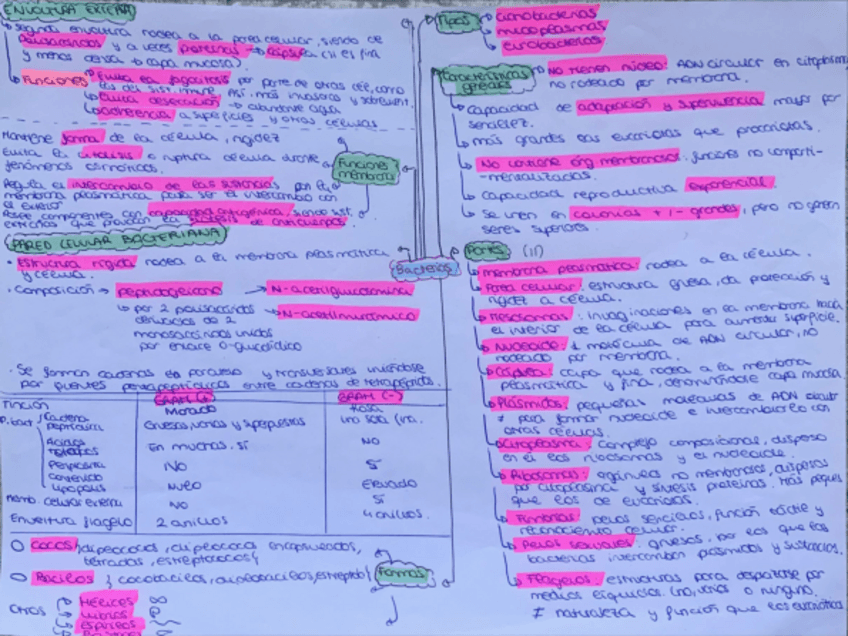 ENVOLTURA EXTERNA
Segunda envoltura rodea a la pared celular, siendo de
polisacáridos y a veces proteínas → cápsula (si es fina
y menos densa → capa mucosa).
Funciones
Evita la fagocitosis por parte de otras cél, como
las del sist. inmune. Así, más invasora y sobrevivir.
Evita desecación → abundante agua
Adherencia a superficies y otras células
Mantiene forma de la célula, rigidez
Evita la citolisis o ruptura célula durante
fenómenos osmóticos.
Regula el intercambio de las sustancias por la
membrana plasmática para ser el intercambio con
el exterior
Posee componentes con capacidad antigénica, siendo sust.
extrañas que provocan la síntesis de anticuerpos.
Funciones
membrana
PARED CELULAR BACTERIANA
· Estructura rígida rodea a la membrana plasmática
y célula.
· Composición → peptidoglicano → N-acetilglucosamina
→ N-acetilmurámico
por 2 polisacáridos
derivados de 2
monosacáridos unidos
por enlace O-glucosídico
· Se forman cadenas en paralelo y transversales uniéndose
por puentes pentapeptídicos entre cadenas de tetrapéptido.
GRAM (+) GRAM (-)
Tinción Morado Rosa
P. bact Cadena peptídica Gruesas, varias y superpuestas Una sola fina.
Ácidos teicoicos En muchas, sí NO
Periplasma NO Sí
contenido lipopolis Nulo Elevado
memb. celular externa NO Sí
Envoltura flagelo 2 anillos 4 anillos.
O Cocos diplococos, diplococos encapsulados,
tétradas, estreptococos
O Bacilos } cocobacilos, diplobacilos, estreptob
Formas
Otros Hélices
vibrios
espirilos
Bacterias
Tipos
cianobacterias
micoplasmas
eurobacterias
Características
generales
No tienen núcleo: ADN circular en citoplasma
no rodeado por membrana.
Capacidad de adaptación y supervivencia mayor por
sencillez.
más grandes las eucariotas que procariotas.
No contiene órg membranosos: funciones no comparti-
-mentalizadas.
Capacidad reproductiva exponencial.
Se unen en colonias +/- grandes, pero no generan
seres superiores.
Partes (11)
membrana plasmática: rodea a la célula.
Pared celular: estructura gruesa, da protección y
rigidez a célula.
Mesosomas: invaginaciones en la membrana hacia
el interior de la célula para aumentar superficie.
Nucleoide: 1 molécula de ADN circular, no
rodeado por membrana.
Cápsula: capa que rodea a la membrana
plasmática y fina, denominándole capa mucosa
Plásmidos: pequeñas moléculas de ADN circular
≠ para formar nucleoide e intercambiarlo con
otras células.
Citoplasma: complejo composicional, disperso
en él los ribosomas y el nucleoide.
Ribosomas: orgánulos no membranosos, dispersos
por citoplasma y síntesis proteínas. Más peques
que los de eucariotas.
Fimbrias: pelos sencillos, función adhte y
reconocimiento celular.
Pelos sexuales: gruesos, por los que las
bacterias intercambian plásmidos y sustancias.
Flagelos: estructuras para desplazarse por
medios líquidos. Uno, varios o ninguno.
≠ naturaleza y función que los eucariotas